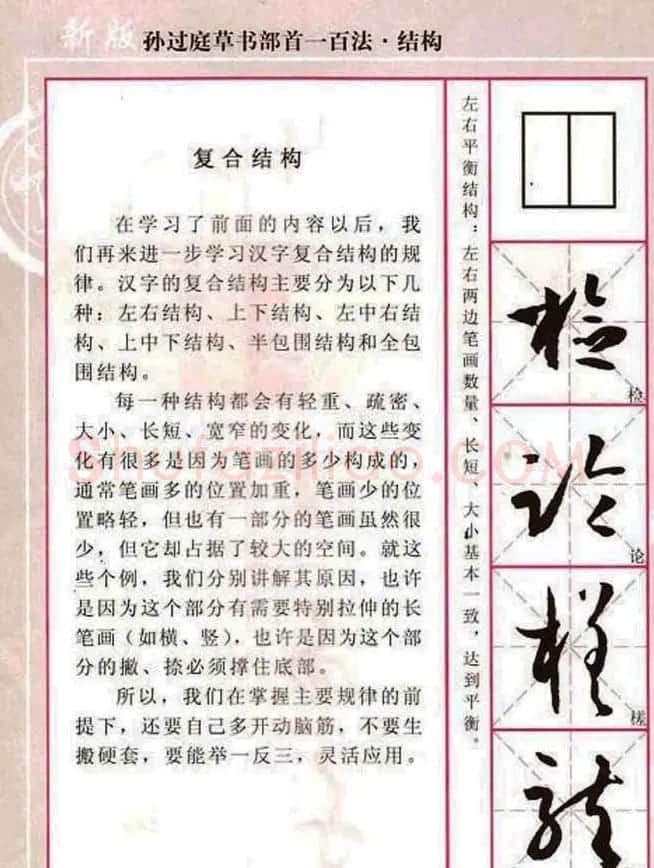 新版 孙过庭草书部首一百法·结构
复合结构
在学习了前面的内容以后，我
们再来进一步学习汉字复合结构的规
律。汉字的复合结构主要分为以下几
种：左右结构、上下结构、左中右结
构、上中下结构、半包围结构和全包
围结构。
每一种结构都会有轻重、疏密、
大小、长短、宽窄的变化，而这些变
化有很多是因为笔画的多少构成的，
通常笔画多的位置加重，笔画少的位
置略轻，但也有一部分的笔画虽然很
少，但它却占据了较大的空间。就这
些个例，我们分别讲解其原因，也许
是因为这个部分有需要特别拉伸的长
笔画（如横、竖），也许是因为这个部
分的撇、捺必须撑住底部。
所以，我们在掌握主要规律的前
提下，还要自己多开动脑筋，不要生
搬硬套，要能举一反三，灵活应用。
左右平衡结构：左右两边笔画数量、长短、大小基本一致，达到平衡。
检
检
论
论
槎
槎